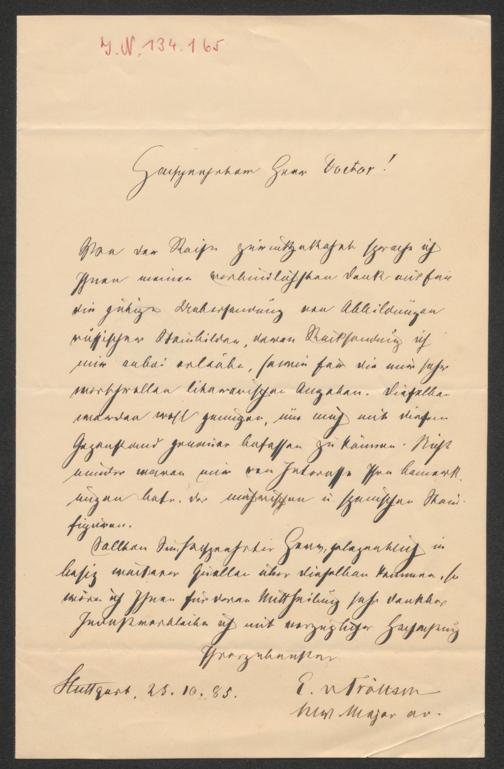 J.N. 134.165
Hochgeehrter Herr Doctor!
Von der Reise zurückgekehrt spreche ich
Ihnen meinen verbindlichsten Dank aus für
die gütige Uebersendung von Abbildungen
russischer Steinbilder, deren Rücksendung ich
mir anbei erlaube, sowie für die mir sehr
werthvollen literarischen Angaben. Dieselben
werden wohl genügen, um mich mit diesem
Gegenstand genauer befassen zu können. Nicht
minder waren mir von Interesse Ihre Bemerk-
ungen betr. der mährischen u spanischen Stein-
figuren.
Sollten Sie, hochgeehrter Herr, gelegentlich in
Besitz weiterer Quellen über dieselben kommen, so
wäre ich Ihnen für deren Mittheilung sehr dankbar.
Indess verbleibe ich mit vorzüglicher Hochachtung
Ihr ergebenster
Stuttgart, 25. 10. 85.
E. v Tröltsch
Major